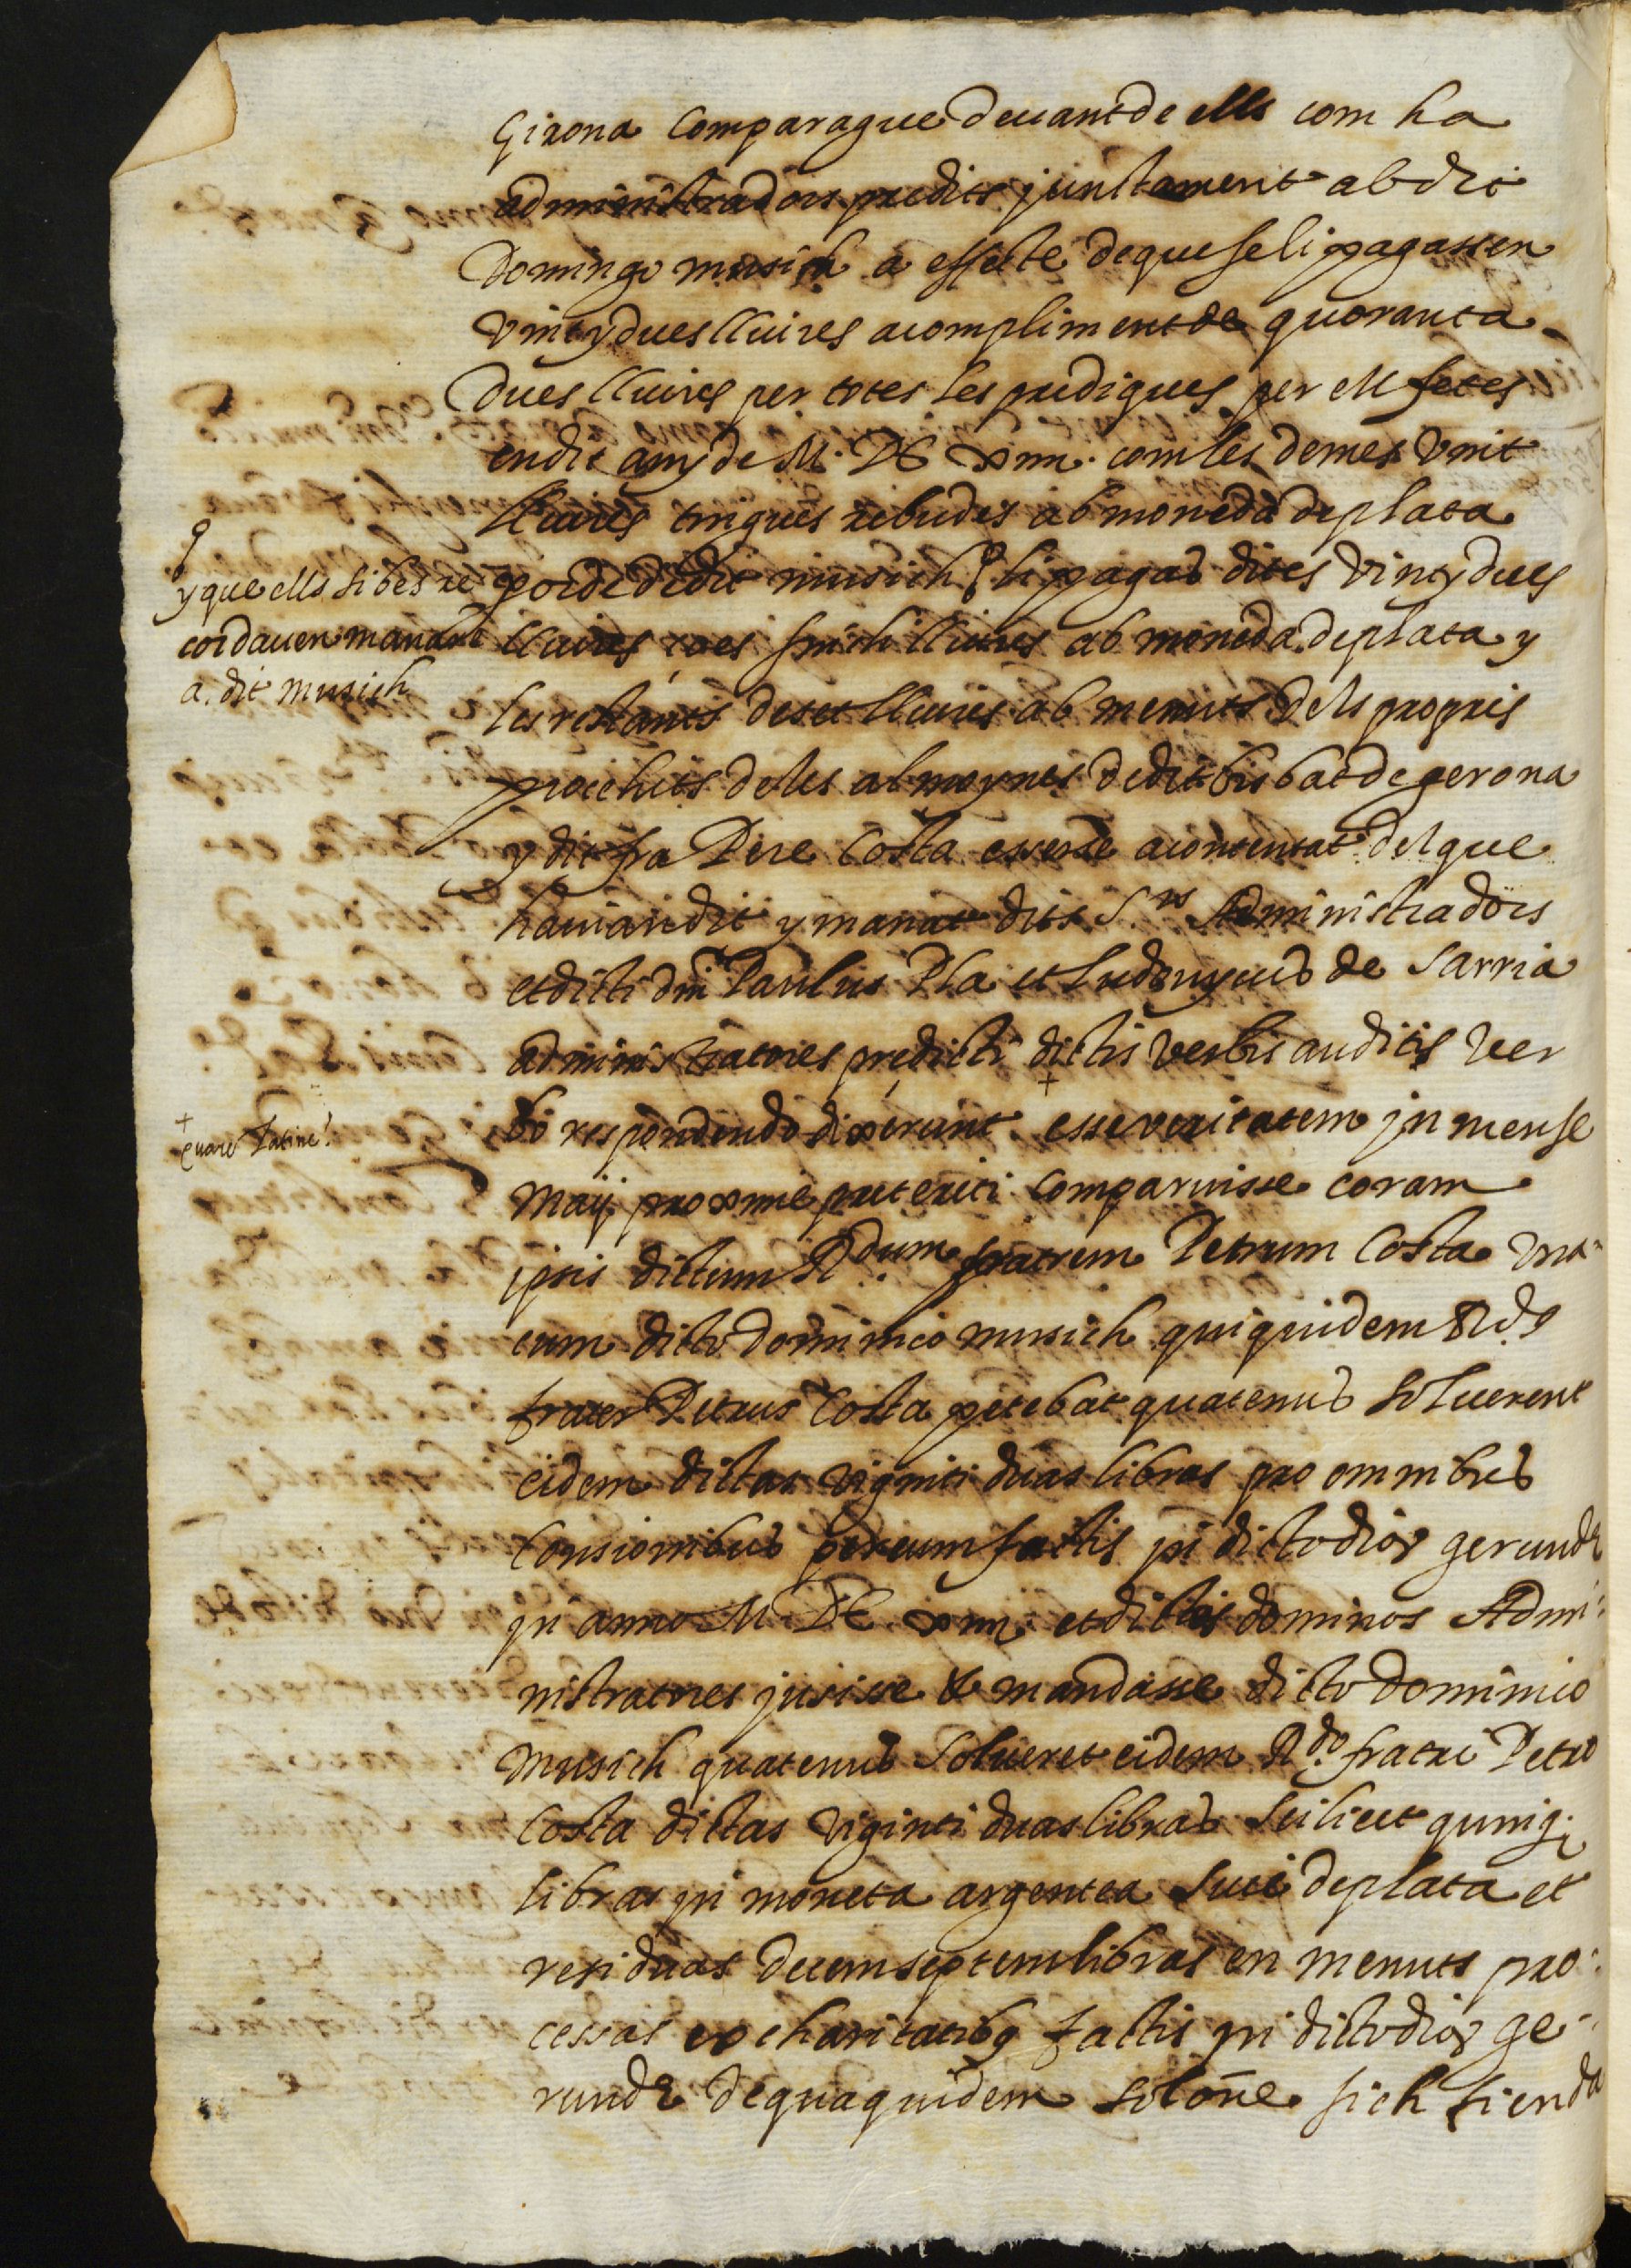 Girona Comparague deuant de ells com ha
administradors predits junctament ab dit
Domingo musich a effecte de que se li pagassen
vint y dues lliures a compliment de quoranta
dues lliures per totes les prediques per ell fetes
en dit any de M. DC xiiii. com les demes vint
lliures tingues rebudes ab moneda de plata
y que ells si bes re
cordauen manare
a dit musich
per dit musich li pagas dites vint y dues
lliures ço es sinch lliures ab moneda de plata y
les restants deset lliures ab menuts dels propris
procehits de les almoynes de dit bisbat de gerona
y dit fra Pere Costa esserse acontentat del que
hauian dit y manat dits S.rs Administradors
et dicti dni Paulus Pla et Ludouycus de Sarria
administratores predicti dictis verbis auditis ver
+
quare Latine?
bo respondendo dixerunt + esse veritatem in mense
Maij proxime preteriti comparuisse coram
ipsis dictum R.dum fratrem Petrum Costa vna
cum dicto dominico musich qui quidem R.ds
frater Petrus Costa petebat quatenus soluerent
eidem dictas viginti duas libras pro omnibus
Consionibus per eum factis in dicto dior gerunde
in anno M. DC xiiii et dictos dominos Admi:
nistratores jusisse & mandasse dicto dominico
Musich quatenus solueret eidem R.do fratri Petro
Costa dictas viginti duas libras scilicet quinq;
libras in moneta argentea siue de plata et
residuas decem septem libras en menuts pro:
cessas ex charitatibq factis in dicto dior ge-
runde de qua quidem solone sich fienda